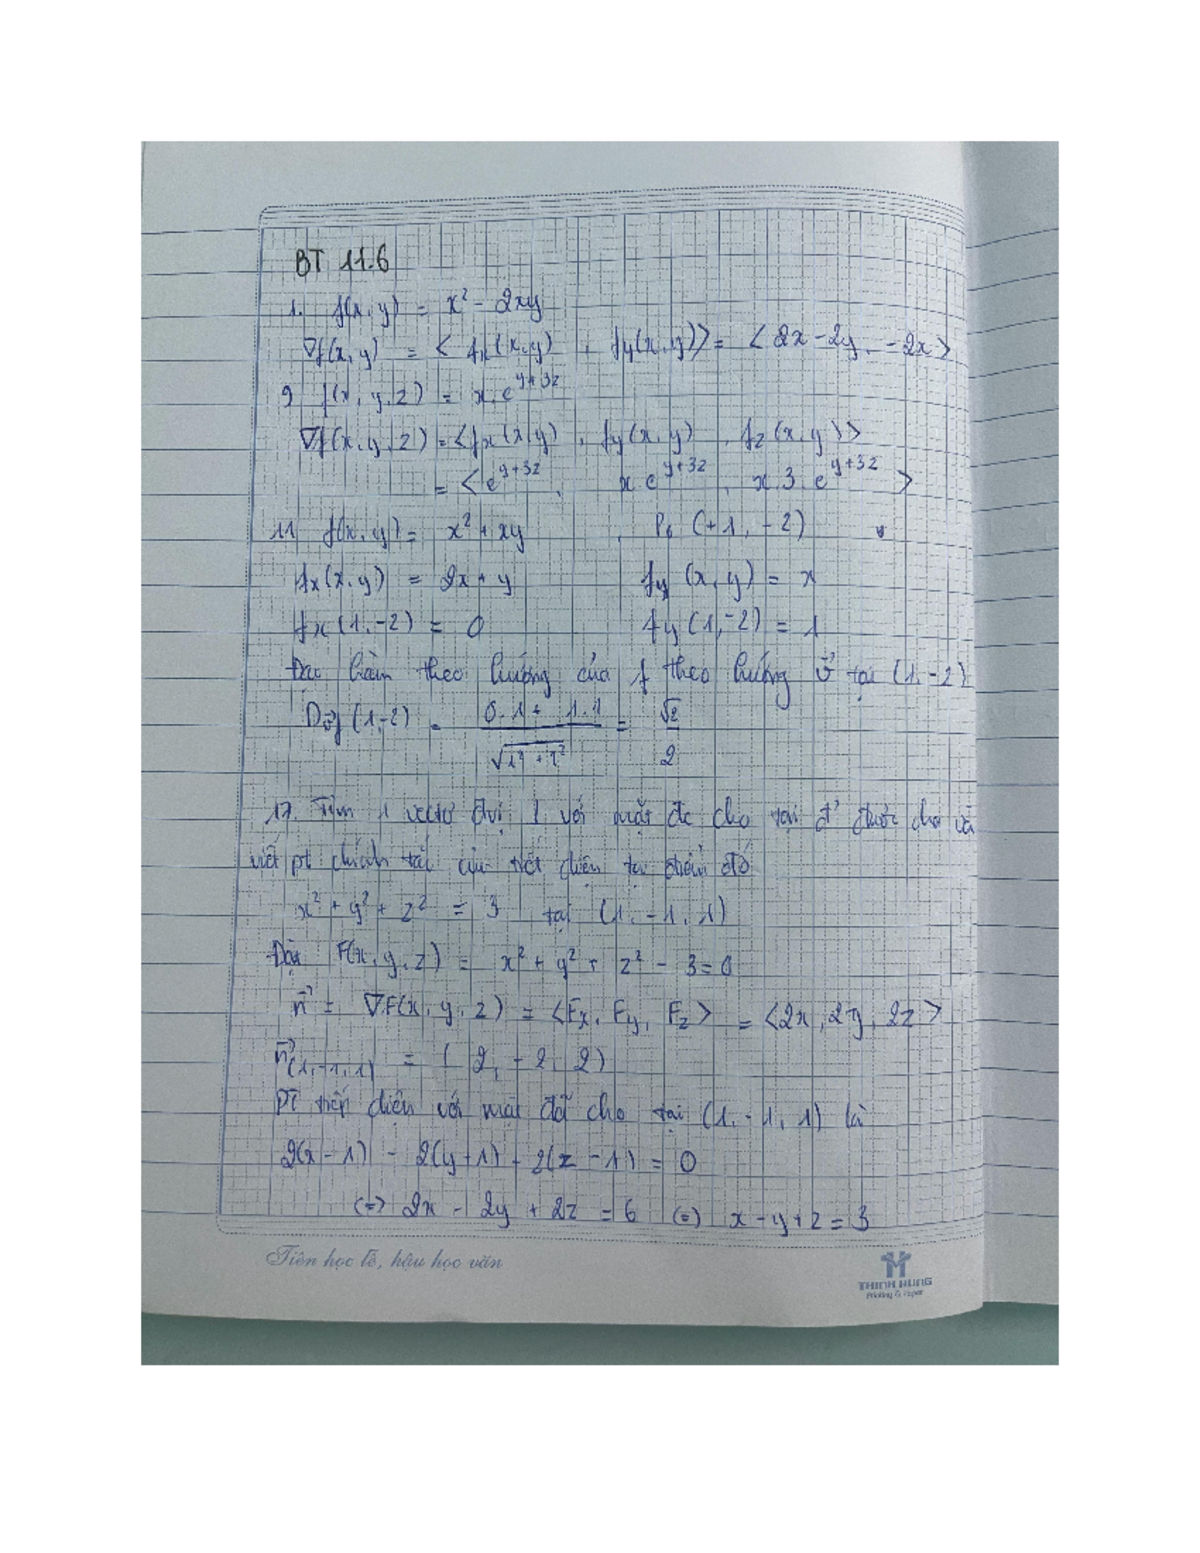 BT 11.6
1. f(x,y) = x² - 2xy
∇f(x,y) = < fx(x,y) , fy(x,y)> = < 2x - 2y, - 2x>
9 f(x, y, z) = x.e^{y+3z}
∇f(x,y,z) = <fx(x,y) , fy(x,y) , fz(x,y)>
= < e^{y+3z} , x e^{y+3z} , x 3 e^{y+3z} >
11 f(x,y) = x² + xy , P₀ (+1, -2)
fx(x,y) = 2x + y fy (x,y) = x
fx(1,-2) = 0 fy(1,-2) = 1
Đạo hàm theo hướng của f theo hướng v⃗ tại (1,-2)
Dv⃗f(1,-2) = (0.1 + 1.1)/√(1² + 1²) = √2/2
17. Tìm 1 vectơ đvị ⊥ với mặt đc cho tại đ' được cho và
viết pt chính tắc của tiết diện tại điểm đó
x² + y² + z² = 3 tại (1, -1, 1)
Đặt F(x,y,z) = x² + y² + z² - 3 = 0
n⃗ = ∇F(x, y, z) = <Fx, Fy, Fz> = <2x, 2y, 2z>
n⃗(1,-1,1) = ( 2, -2, 2)
PT tiếp diện với mặt đã cho tại (1, -1, 1) là
2(x - 1) - 2(y+1) + 2(z - 1) = 0
(=) 2x - 2y + 2z = 6 (=) x - y + z = 3
Tiên học lễ, hậu học văn
THINH HUNG
Printing & Paper